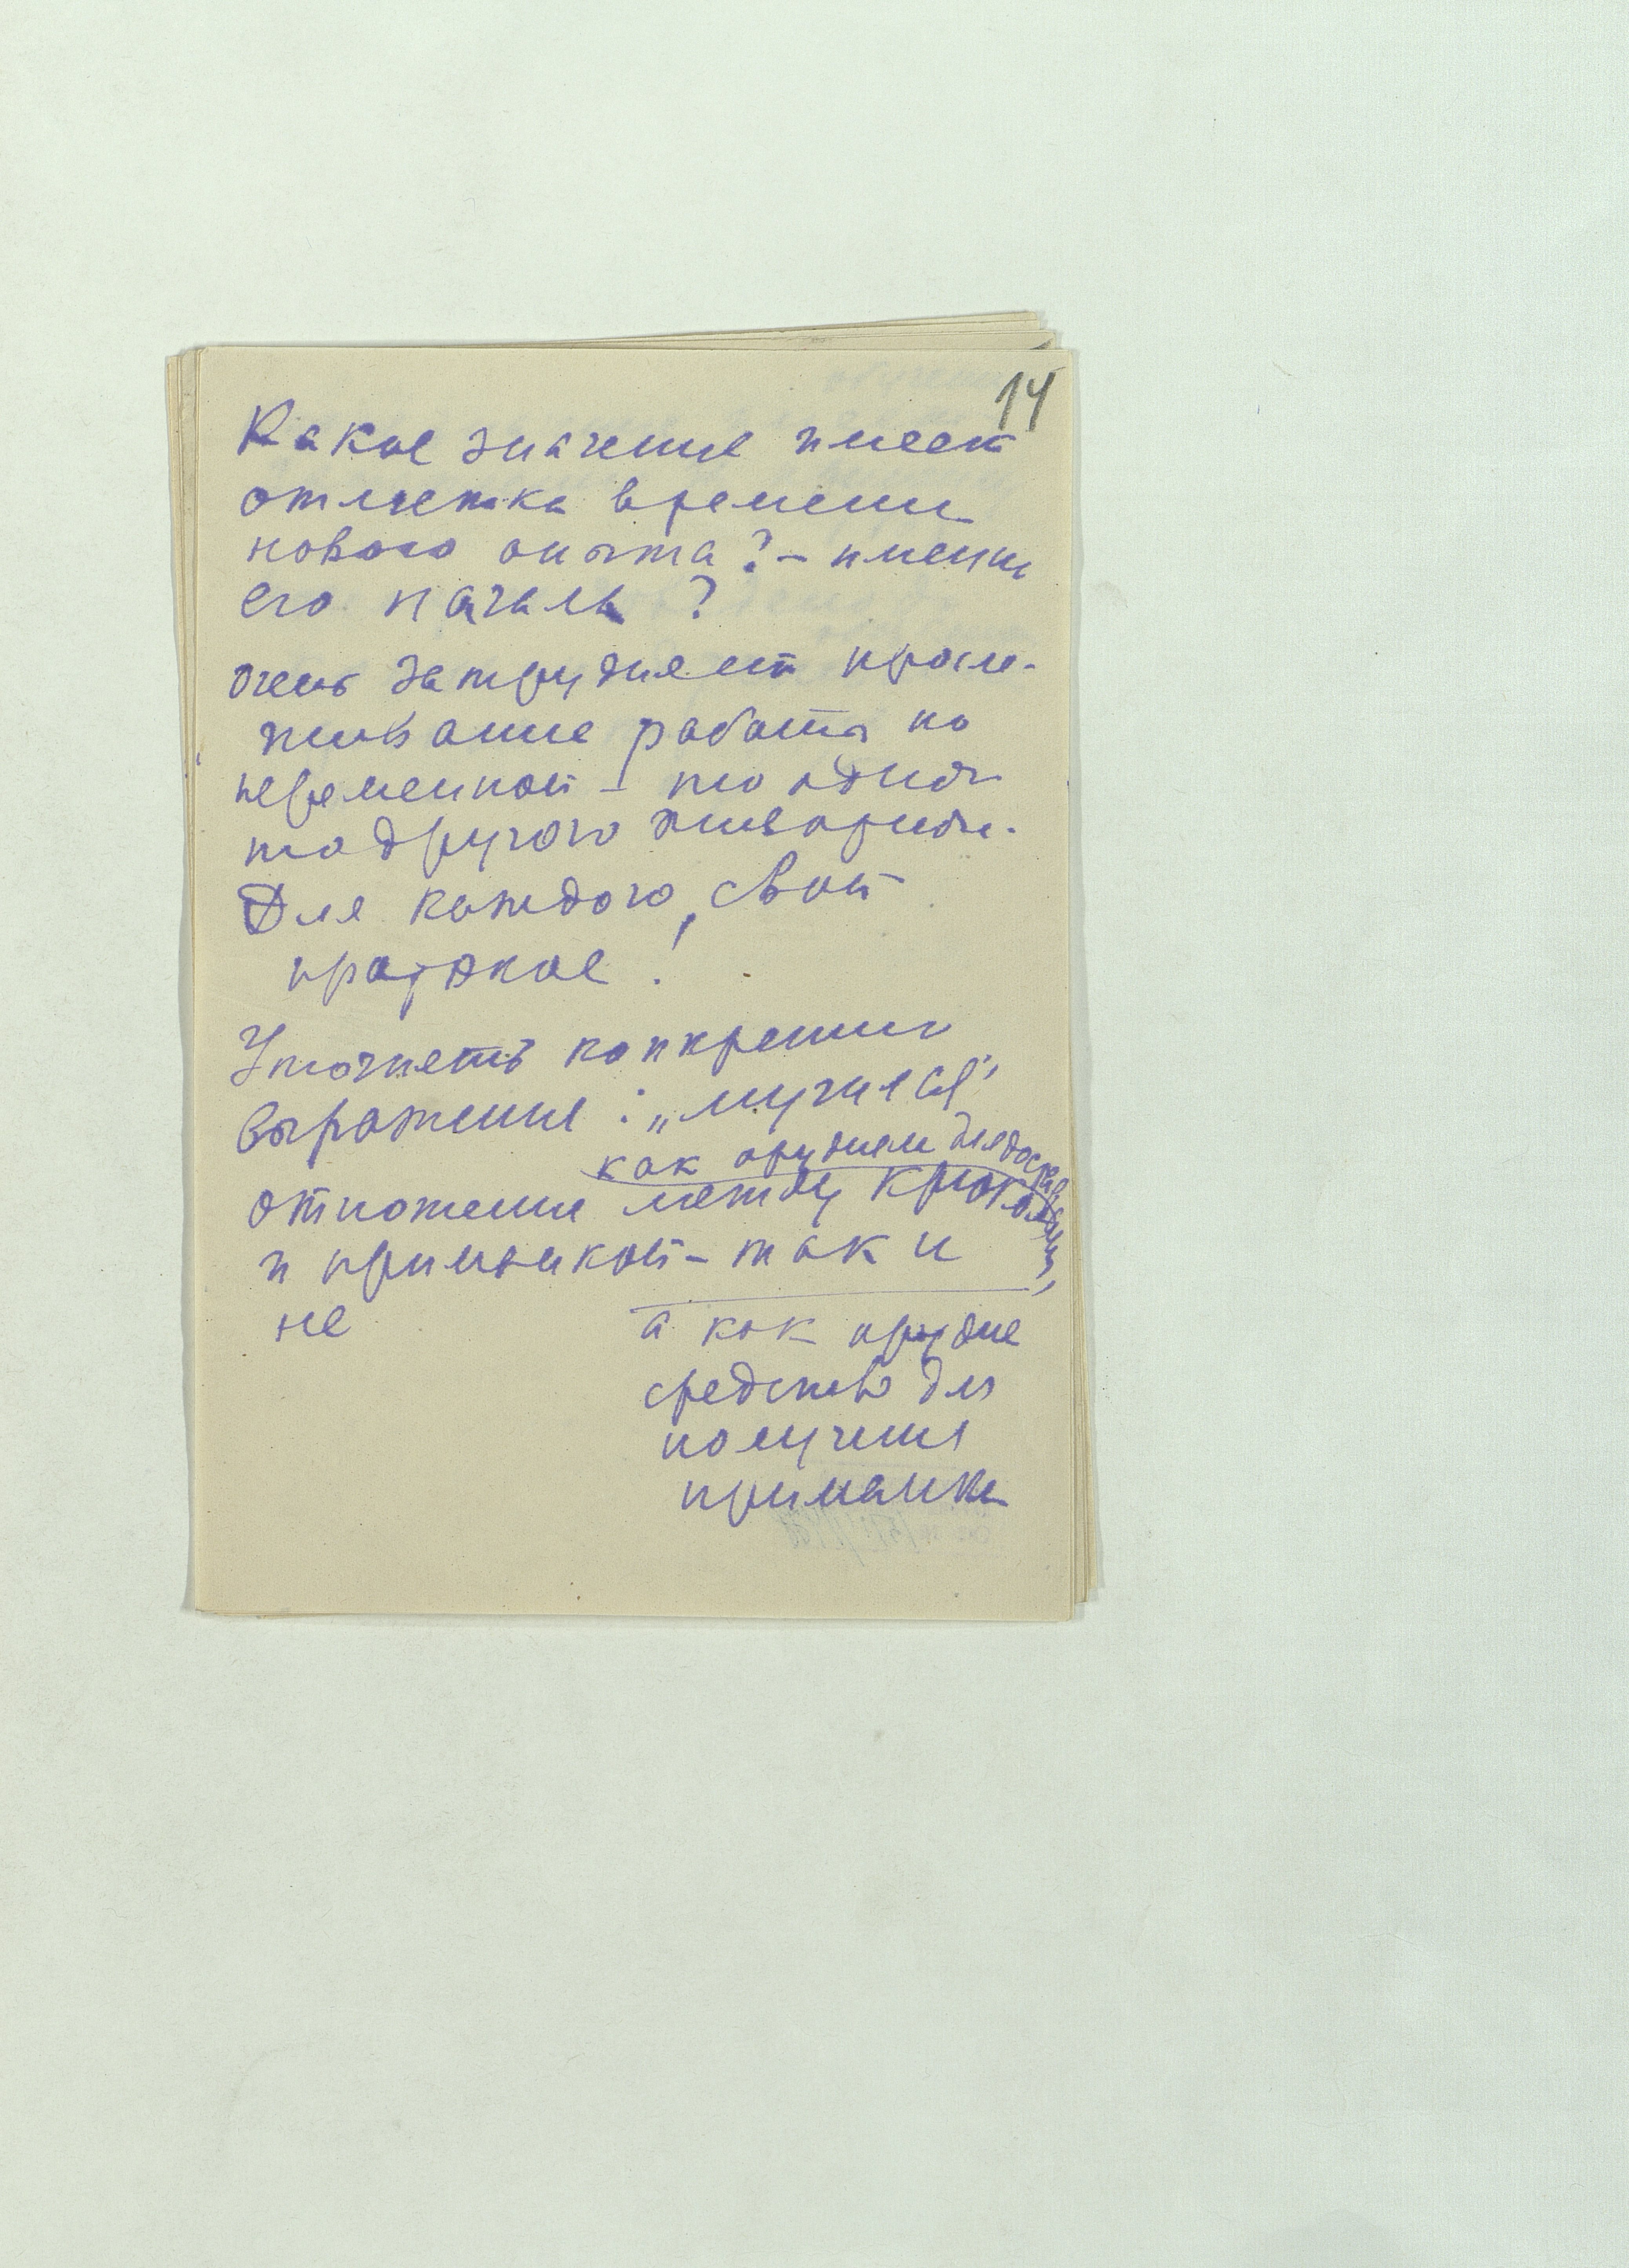 14
Какое значение имеет
отметка времени
нового опыта? – именно
его начала?
очень затрудняет просле-
живание работа по
переменной – то одного
то другого животного.
Для каждого, свой
протокол!
Уточнять конкретно
выражение: „мучился"
как орудием для доставания,
отношение между крючком
и приманкой – так и
не
а как орудие
средство для
получения
приманки